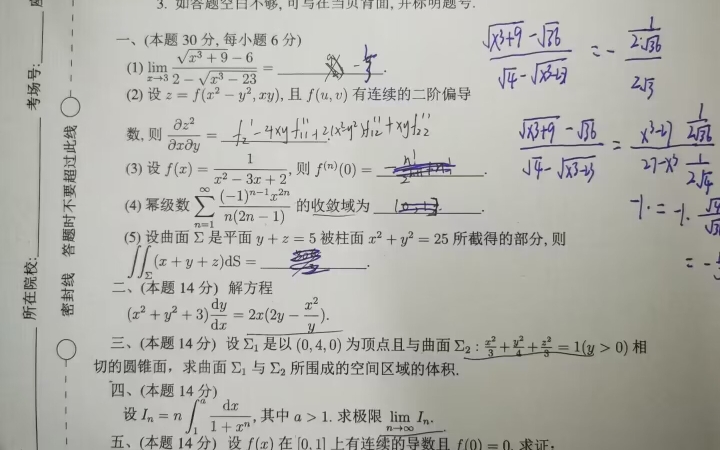 3. 如答题空白不够, 可写在当页背面, 并标明题号.
一、(本题 30 分, 每小题 6 分)
(1) lim_{x→3} (√(x³+9) − 6)/(2 − √(x³−23)) = -1/3.
(2) 设 z = f(x² − y², xy), 且 f(u, v) 有连续的二阶偏导
数, 则 ∂²z/∂x∂y = f₂' - 4xy f₁₁'' + 2(x²-y²)f₁₂'' + xy f₂₂''
(3) 设 f(x) = 1/(x² − 3x + 2), 则 f⁽ⁿ⁾(0) =
(4) 幂级数 ∑_{n=1}^{∞} (−1)^{n−1}x^{2n}/(n(2n − 1)) 的收敛域为
(5) 设曲面 Σ 是平面 y + z = 5 被柱面 x² + y² = 25 所截得的部分, 则
∬_Σ (x + y + z)dS =
二、(本题 14 分) 解方程
(x² + y² + 3) dy/dx = 2x(2y − x²/y).
三、(本题 14 分) 设 Σ₁ 是以 (0, 4, 0) 为顶点且与曲面 Σ₂ : x²/3 + y²/4 + z²/3 = 1(y > 0) 相
切的圆锥面, 求曲面 Σ₁ 与 Σ₂ 所围成的空间区域的体积.
四、(本题 14 分)
设 Iₙ = n ∫₁ᵃ dx/(1 + xⁿ), 其中 a > 1. 求极限 lim_{n→∞} Iₙ.
五、(本题 14 分) 设 f(x) 在 [0, 1] 上有连续的导数且 f(0) = 0. 求证:
考场号:
所在院校:
密封线 答题时不要超过此线